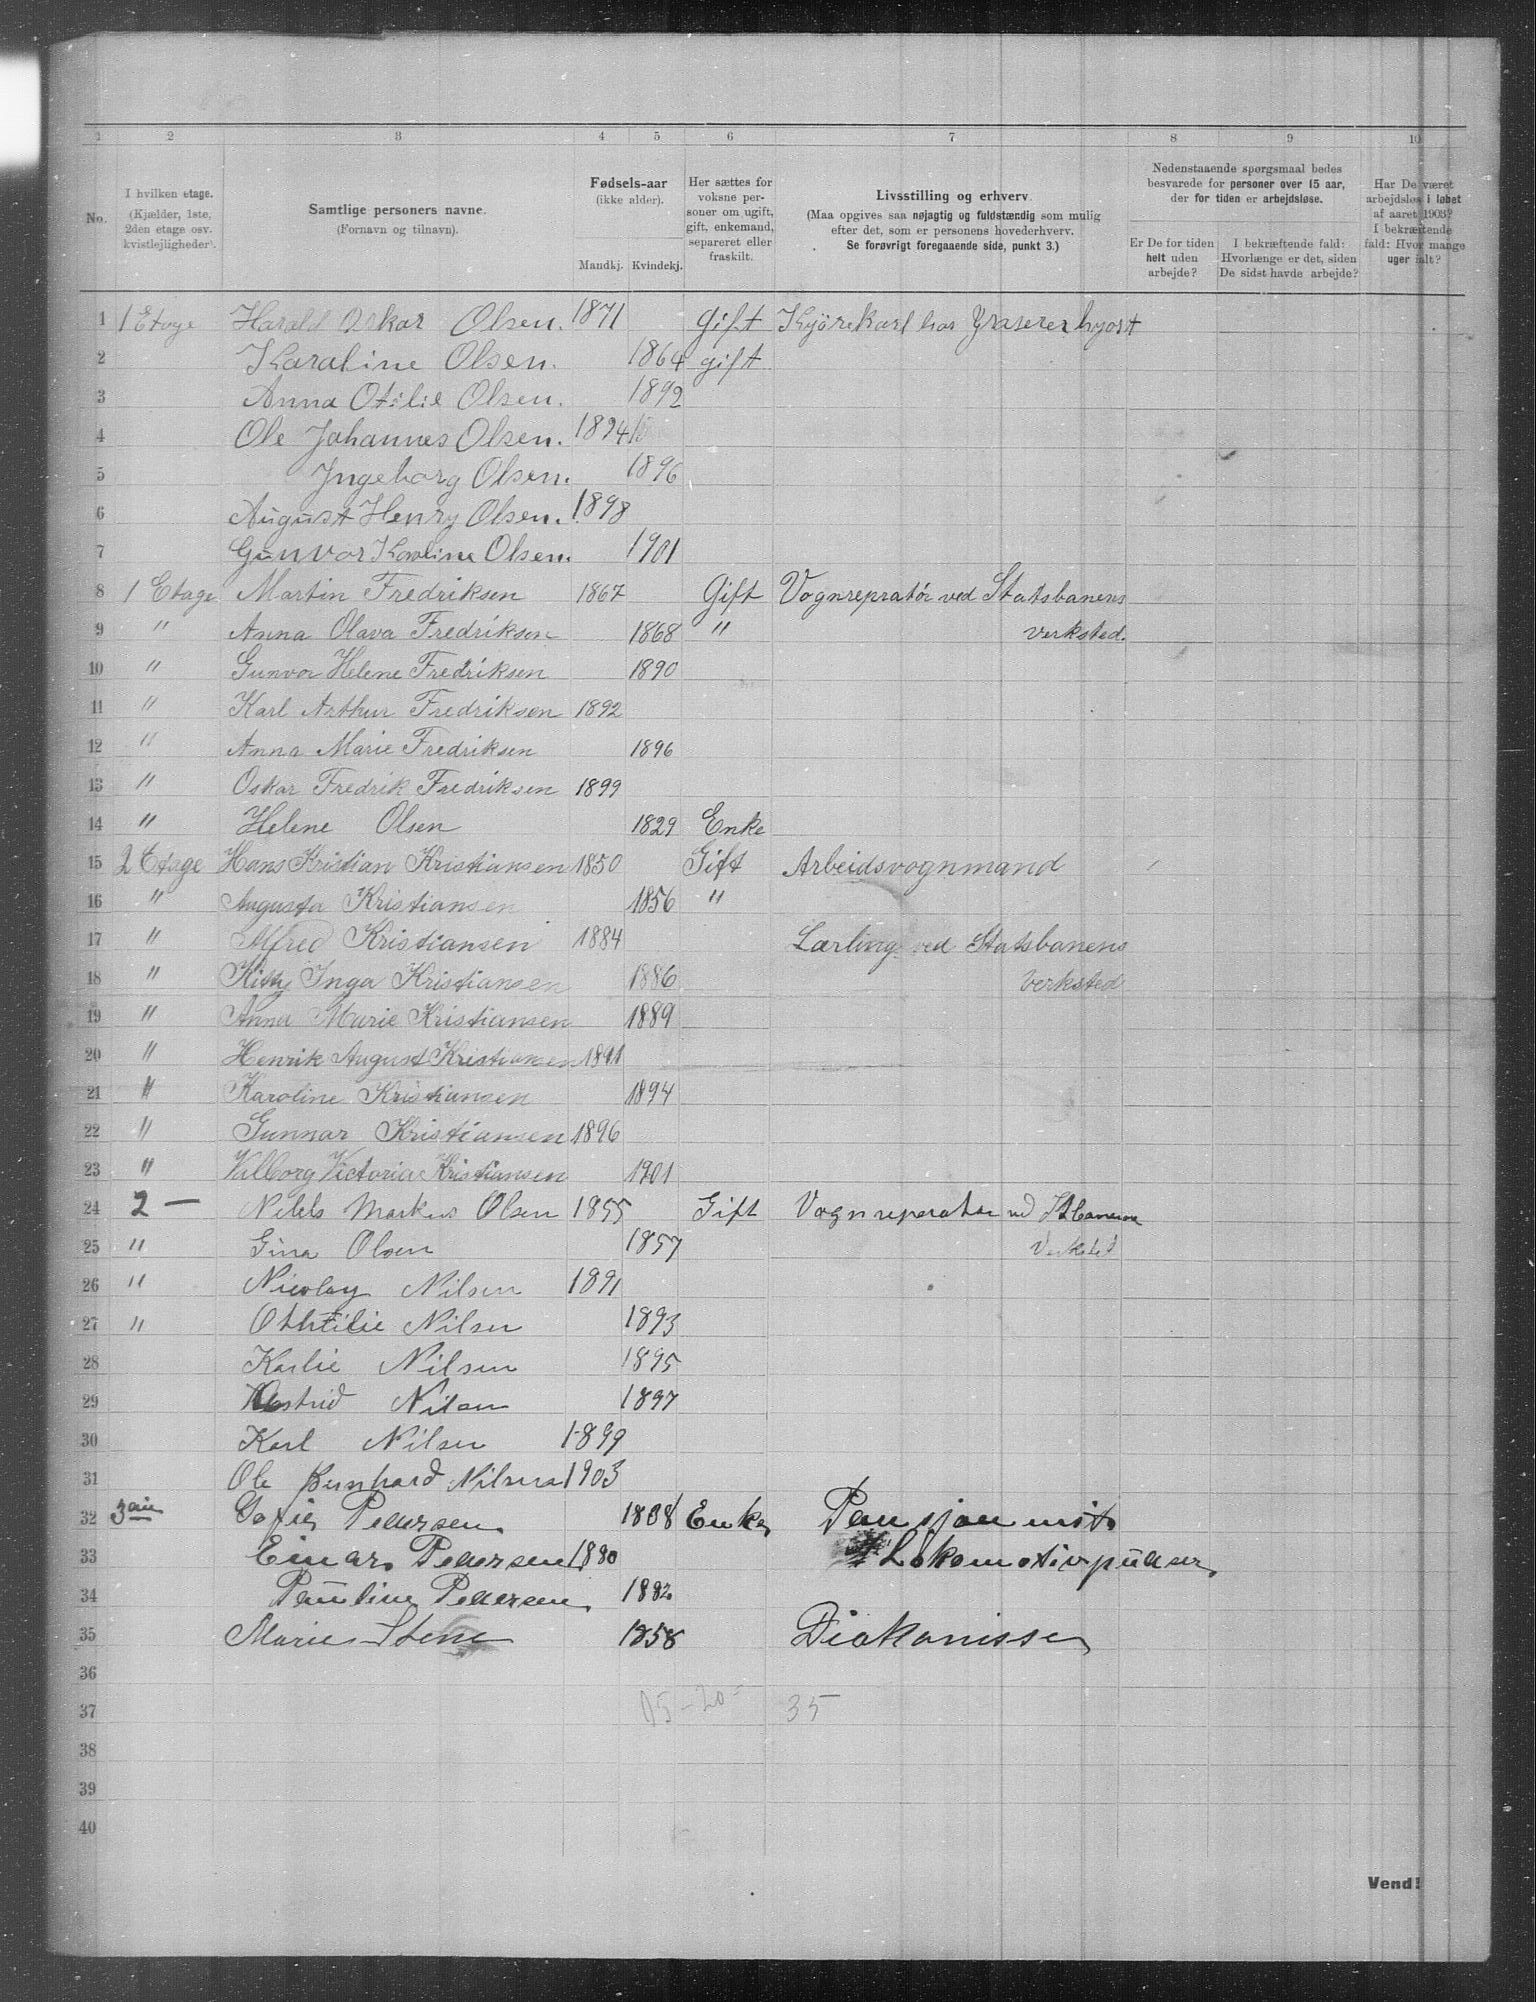 1 2 3 4 5 6 7 8 9 10
No.
I hvilken etage.
(Kjælder, 1ste,
2den etage osv.
kvistlejligheder).
Samtlige personers navne.
(Fornavn og tilnavn).
Fødsels-aar
(ikke alder).
Mandkj. Kvindekj.
Her sættes for
voksne per-
soner om ugift,
gift, enkemand,
separeret eller
fraskilt.
Livsstilling og erhverv.
(Maa opgives saa nøjagtig og fuldstændig som mulig
efter det, som er personens hovederhverv.
Se forøvrigt foregaaende side, punkt 3.)
Nedenstaaende spørgsmaal bedes
besvarede for personer over 15 aar,
der for tiden er arbejdsløse.
Er De for tiden
helt uden
arbejde?
I bekræftende fald:
Hvorlænge er det, siden
De sidst havde arbejde?
Har De været
arbejdsløs i løbet
af aaret 1903?
I bekræftende
fald: Hvor mange
uger ialt?
1 1 Etage Harald Oskar Olsen. 1871 Gift Kjørekarl hos
2 Karaline Olsen. 1864 gift
3 Anna Otilie Olsen. 1892
4 Ole Johannes Olsen. 1894
5 Ingeborg Olsen. 1896
6 August Henry Olsen. 1898
7 Gunvor Karoline Olsen. 1901
8 1 Etage Martin Fredriksen 1867 Gift Vognrepratør ved Statsbanens
9 " Anna Olava Fredriksen 1868 " verksted.
10 " Gunvor Helene Fredriksen 1890
11 " Karl Arthur Fredriksen 1892
12 " Anna Marie Fredriksen 1896
13 " Oskar Fredrik Fredriksen 1899
14 " Helene Olsen 1829 Enke
15 2 Etage Hans Kristian Kristiansen 1850 Gift Arbeidsvognmand
16 " Augusta Kristiansen 1856 "
17 " Alfred Kristiansen 1884 Lærling ved Statsbanens
18 " Kitty Inga Kristiansen 1886 verksted
19 " Anna Marie Kristiansen 1889
20 " Henrik August Kristiansen 1891
21 " Karoline Kristiansen 1894
22 " Gunnar Kristiansen 1896
23 " Valborg Victoria Kristiansen 1901
24 2 — Nils Markus Olsen 1855 Gift Vognreperatør
25 " Gina Olsen 1857
26 " Nicolay Nilsen 1891
27 " Othtilie Nilsen 1893
28 Karlie Nilsen 1895
29 Astrid Nilsen 1897
30 Karl Nilsen 1899
31 Ole Bernhard Nilsen 1903
32 3die Sofie Pedersen 1838 Enke Pensjonnist
33 Einar Pedersen 1880 Lokomotivpudser
34 Pauline Pedersen 1882
35 Marie Stene 1858 Diakonisse
36
37 15 - 20 - 35
38
39
40
Vend!